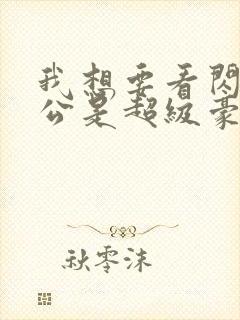 我想要看閃
公是超級豪
秋零沫